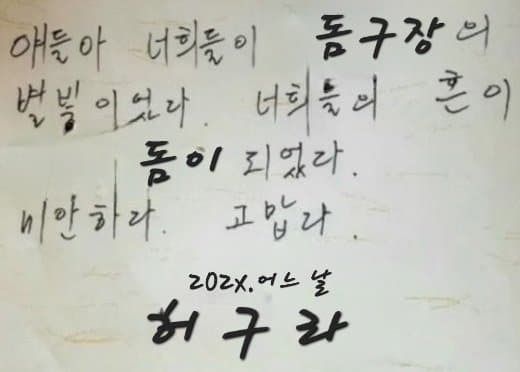 얘들아 너희들이 돔구장의
별빛이었다. 너희들의 혼이
돔이 되었다.
미안하다. 고맙다.
202X.어느 날
허구라